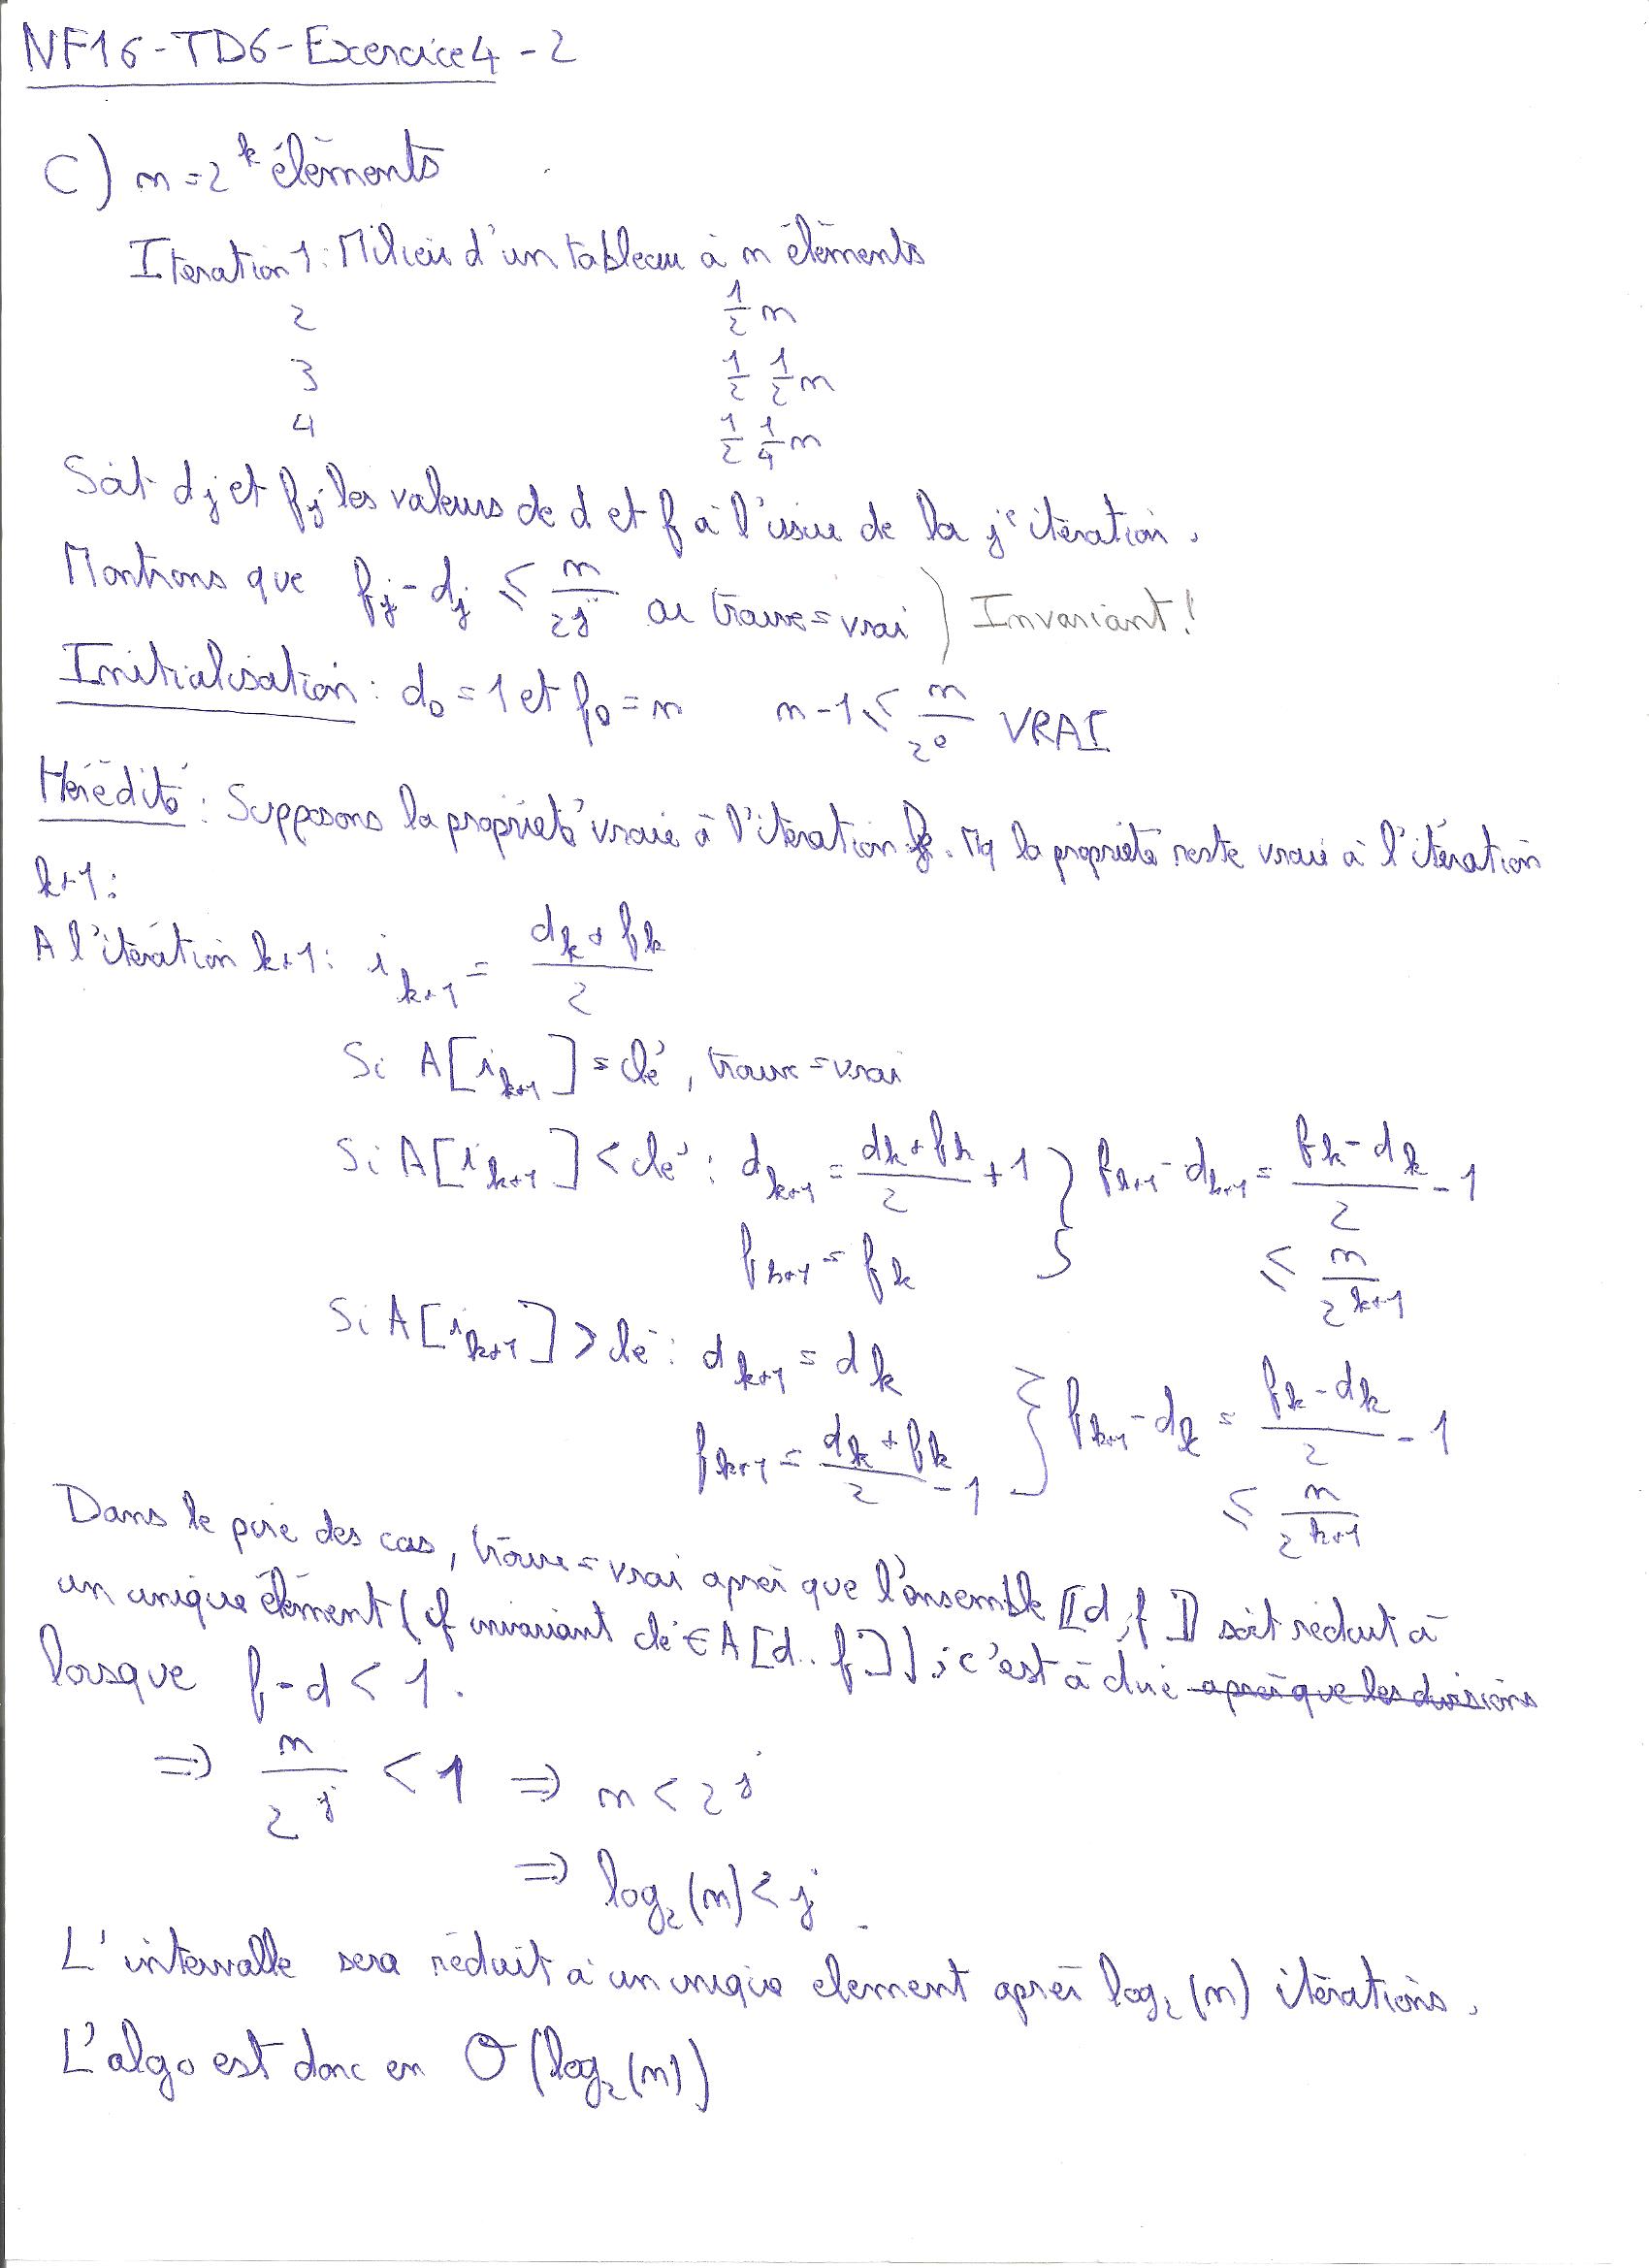 NF16-TD6-Exercice4-2
C) n=2^k éléments
Iteration 1: Milieu d'un tableau à n éléments
2 1/2 n
3 1/2 1/2 n
4 1/2 1/4 n
Soit dj et fj les valeurs de d et f à l'issue de la j^e itération.
Montrons que fj - dj ≤ n/2^j ou trouve=vrai ) Invariant!
Initialisation: d0=1 et f0=n n-1 ≤ n/2^0 VRAI
Hérédité: Supposons la propriété vraie à l'itération k. Mq la propriété reste vraie à l'itération
k+1:
A l'itération k+1: i_{k+1} = (dk+fk)/2
Si A[i_{k+1}]=clé, trouve=vrai
Si A[i_{k+1}]<clé: d_{k+1} = (dk+fk)/2 +1 } f_{k+1}-d_{k+1} = (fk-dk)/2 -1
f_{k+1} = fk ≤ n/2^{k+1}
Si A[i_{k+1}]>clé: d_{k+1} = dk
f_{k+1} = (dk+fk)/2 -1 } f_{k+1}-dk = (fk-dk)/2 -1
≤ n/2^{k+1}
Dans le pire des cas, trouve=vrai après que l'ensemble [[d,f]] soit réduit à
un unique élément (cf invariant clé∈A[d..f]), c'est à dire après que les divisions
lorsque f-d<1.
⇒ n/2^j < 1 ⇒ n<2^j
⇒ log2(n)<j.
L'intervalle sera réduit à un unique element après log2(n) itérations.
L'algo est donc en O(log2(n))